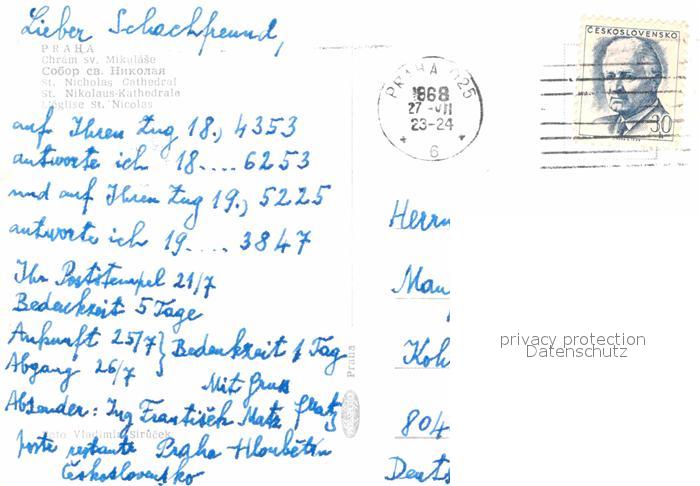 Lieber Schachfreund,
PRAHA
Chrám sv. Mikuláše
Собор св. Николая
St. Nicholas Cathedral
St. Nikolaus-Kathedrale
L'église St. Nicolas
auf Ihren Zug 18., 4353
antworte ich 18.... 6253
und auf Ihren Zug 19., 5225
antworte ich 19.... 3847
Ihr Poststempel 21/7
Bedenkzeit 5 Tage
Ankunft 25/7 } Bedenkzeit 1 Tag
Abgang 26/7
Mit Gruss
Absender: Ing František Matz
Foto Vladimír Sirůček
poste restante Praha Hloubětín
Československo
Praha
PRAHA 025
1968
27.-VII
23-24
6
ČESKOSLOVENSKO
30
Herrn
Mau
Koh
804
Deuts
privacy protection
Datenschutz